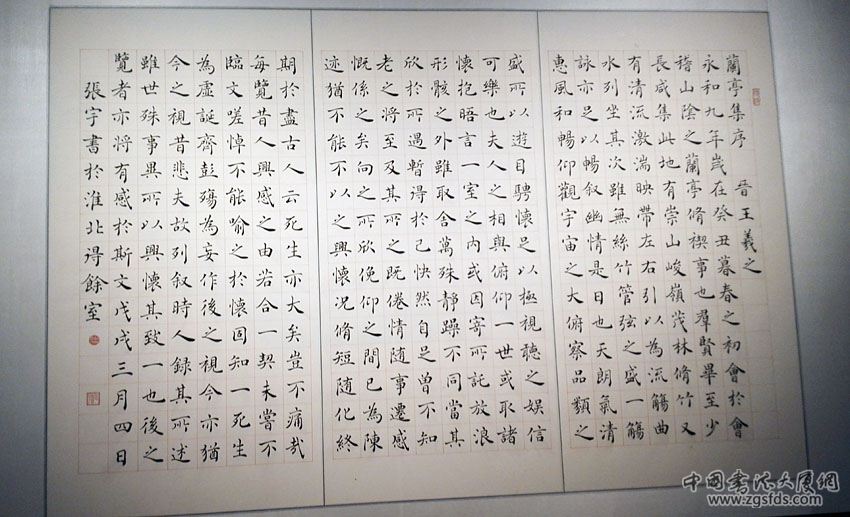 蘭亭集序 晉王羲之
永和九年歲在癸丑暮春之初會於會
稽山陰之蘭亭脩禊事也羣賢畢至少
長咸集此地有崇山峻嶺茂林脩竹又
有清流激湍映帶左右引以為流觴曲
水列坐其次雖無絲竹管弦之盛一觴
詠亦足以暢叙幽情是日也天朗氣清
惠風和暢仰觀宇宙之大俯察品類之
盛所以遊目騁懷足以極視聽之娛信
可樂也夫人之相與俯仰一世或取諸
懷抱晤言一室之內或因寄所託放浪
形骸之外雖取舍萬殊靜躁不同當其
欣於所遇暫得於己快然自足曾不知
老之將至及其所之既倦情隨事遷感
慨係之矣向之所欣俛仰之間已為陳
迹猶不能不以之興懷況脩短隨化終
期於盡古人云死生亦大矣豈不痛哉
每覽昔人興感之由若合一契未嘗不
臨文嗟悼不能喻之於懷固知一死生
為虛誕齊彭殤為妄作後之視今亦猶
今之視昔悲夫故列叙時人録其所述
雖世殊事異所以興懷其致一也後之
覽者亦將有感於斯文戊戌三月四日
張宇書於淮北得餘室
中国书法大厦網
www.zgsfds.com